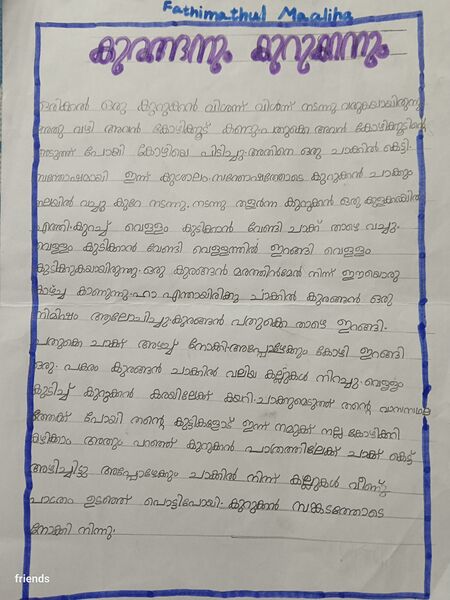 Fathimathul Maaliha
കുരങ്ങനും കുറുക്കനും
ഒരിക്കൽ ഒരു കുറുക്കൻ വിശന്ന് വിശന്ന് നടന്നു വരുകയായിരുന്നു
അതു വഴി അവൻ കോഴിക്കൂട് കണ്ടു. പതുക്കെ അവൻ കോഴിക്കൂടിന്റെ
അടുത്ത് പോയി കോഴിയെ പിടിച്ചു. അതിനെ ഒരു ചാക്കിൽ കെട്ടി.
സന്തോഷമായി ഇന്ന് കുശാലം. സന്തോഷത്തോടെ കുറുക്കൻ ചാക്കും
തലയിൽ വച്ചു. കുറേ നടന്നു. നടന്നു തളർന്ന കുറുക്കൻ ഒരു കുളക്കരയിൽ
എത്തി. കുറച്ച് വെള്ളം കുടിക്കാൻ വേണ്ടി ചാക് താഴെ വച്ചു.
വെള്ളം കുടിക്കാൻ വേണ്ടി വെള്ളത്തിൽ ഇറങ്ങി വെള്ളം
കുടിക്കുകയായിരുന്നു. ഒരു കുരങ്ങൻ മരത്തിൻമേൽ നിന്ന് ഈയൊരു
കാഴ്ച കാണുന്നു. ഹാ എന്തായിരിക്കു ചാക്കിൽ കുരങ്ങൻ ഒരു
നിമിഷം ആലോചിച്ചു. കുരങ്ങൻ പതുക്കെ താഴെ ഇറങ്ങി.
പതുക്കെ ചാക്ക് അഴച്ച് നോക്കി. അപ്പോഴേക്കും കോഴി ഇറങ്ങി
ഒരു. പകരം കുരങ്ങൻ ചാക്കിൽ വലിയ കല്ലുകൾ നിറച്ചു. വെള്ളം
കുടിച്ച് കുറുക്കൻ കരയിലേക്ക് കയറി. ചാക്കുമെടുത്ത് തന്റെ വാസസ്ഥല
ത്തേക്ക് പോയി തന്റെ കുട്ടികളോട് ഇന്ന് നമുക്ക് നല്ല കോഴിക്കറി
കഴിക്കാം അതും പറഞ്ഞ് കുറുക്കൻ പാത്രത്തിലേക്ക് ചാക്ക് കെട്ട്
അഴിച്ചിട്ടു അപ്പോഴേക്കും ചാക്കിൽ നിന്ന് കല്ലുകൾ വീണു
പാത്രം ഉടഞ്ഞ് പൊട്ടിപോയി. കുറുക്കൻ സങ്കടത്തോടെ
നോക്കി നിന്നു.
friends